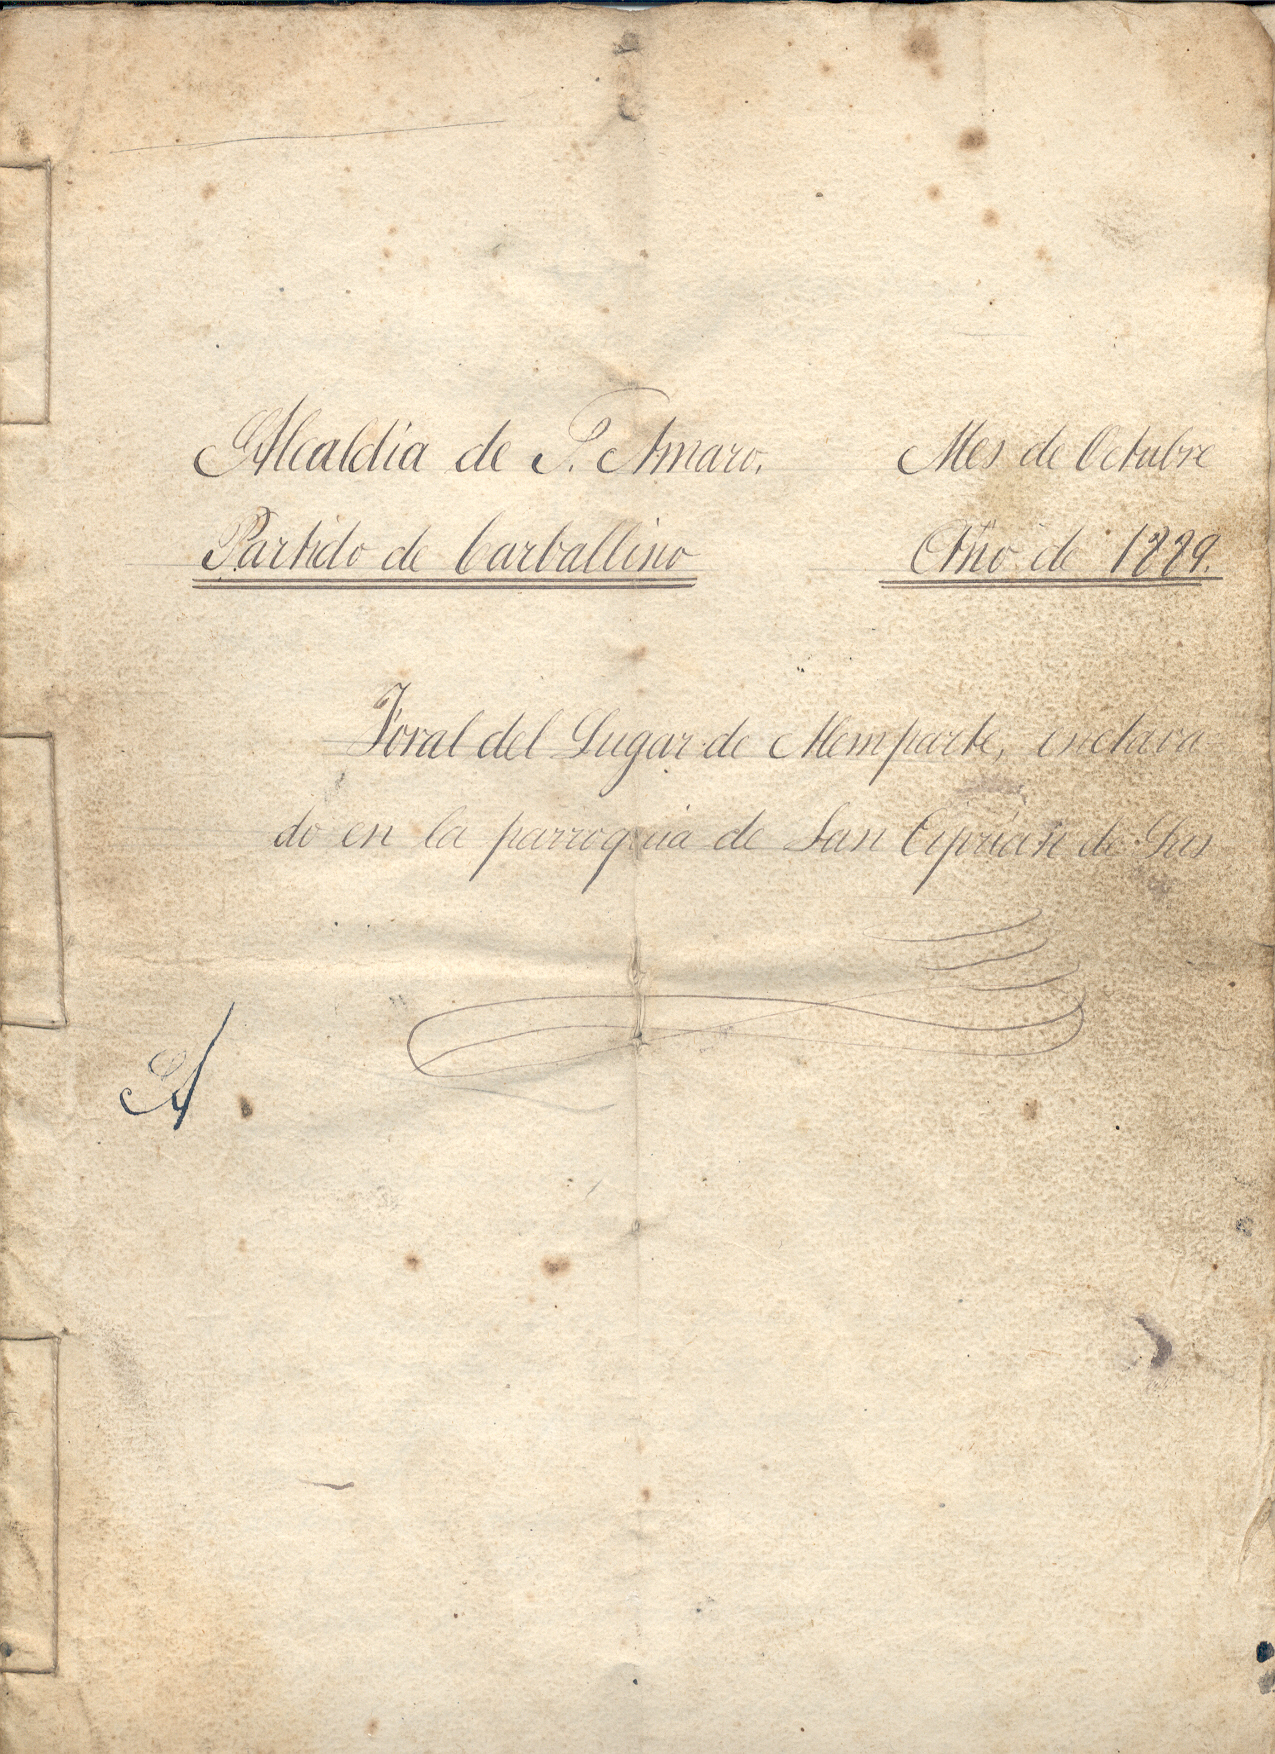 Alcaldia de S. Amaro.
Mes de Octubre
Partido de Carballino
Año de 1889.
Foral del Lugar de Memparte, enclava
do en la parroquia de San Ciprian de Las
A